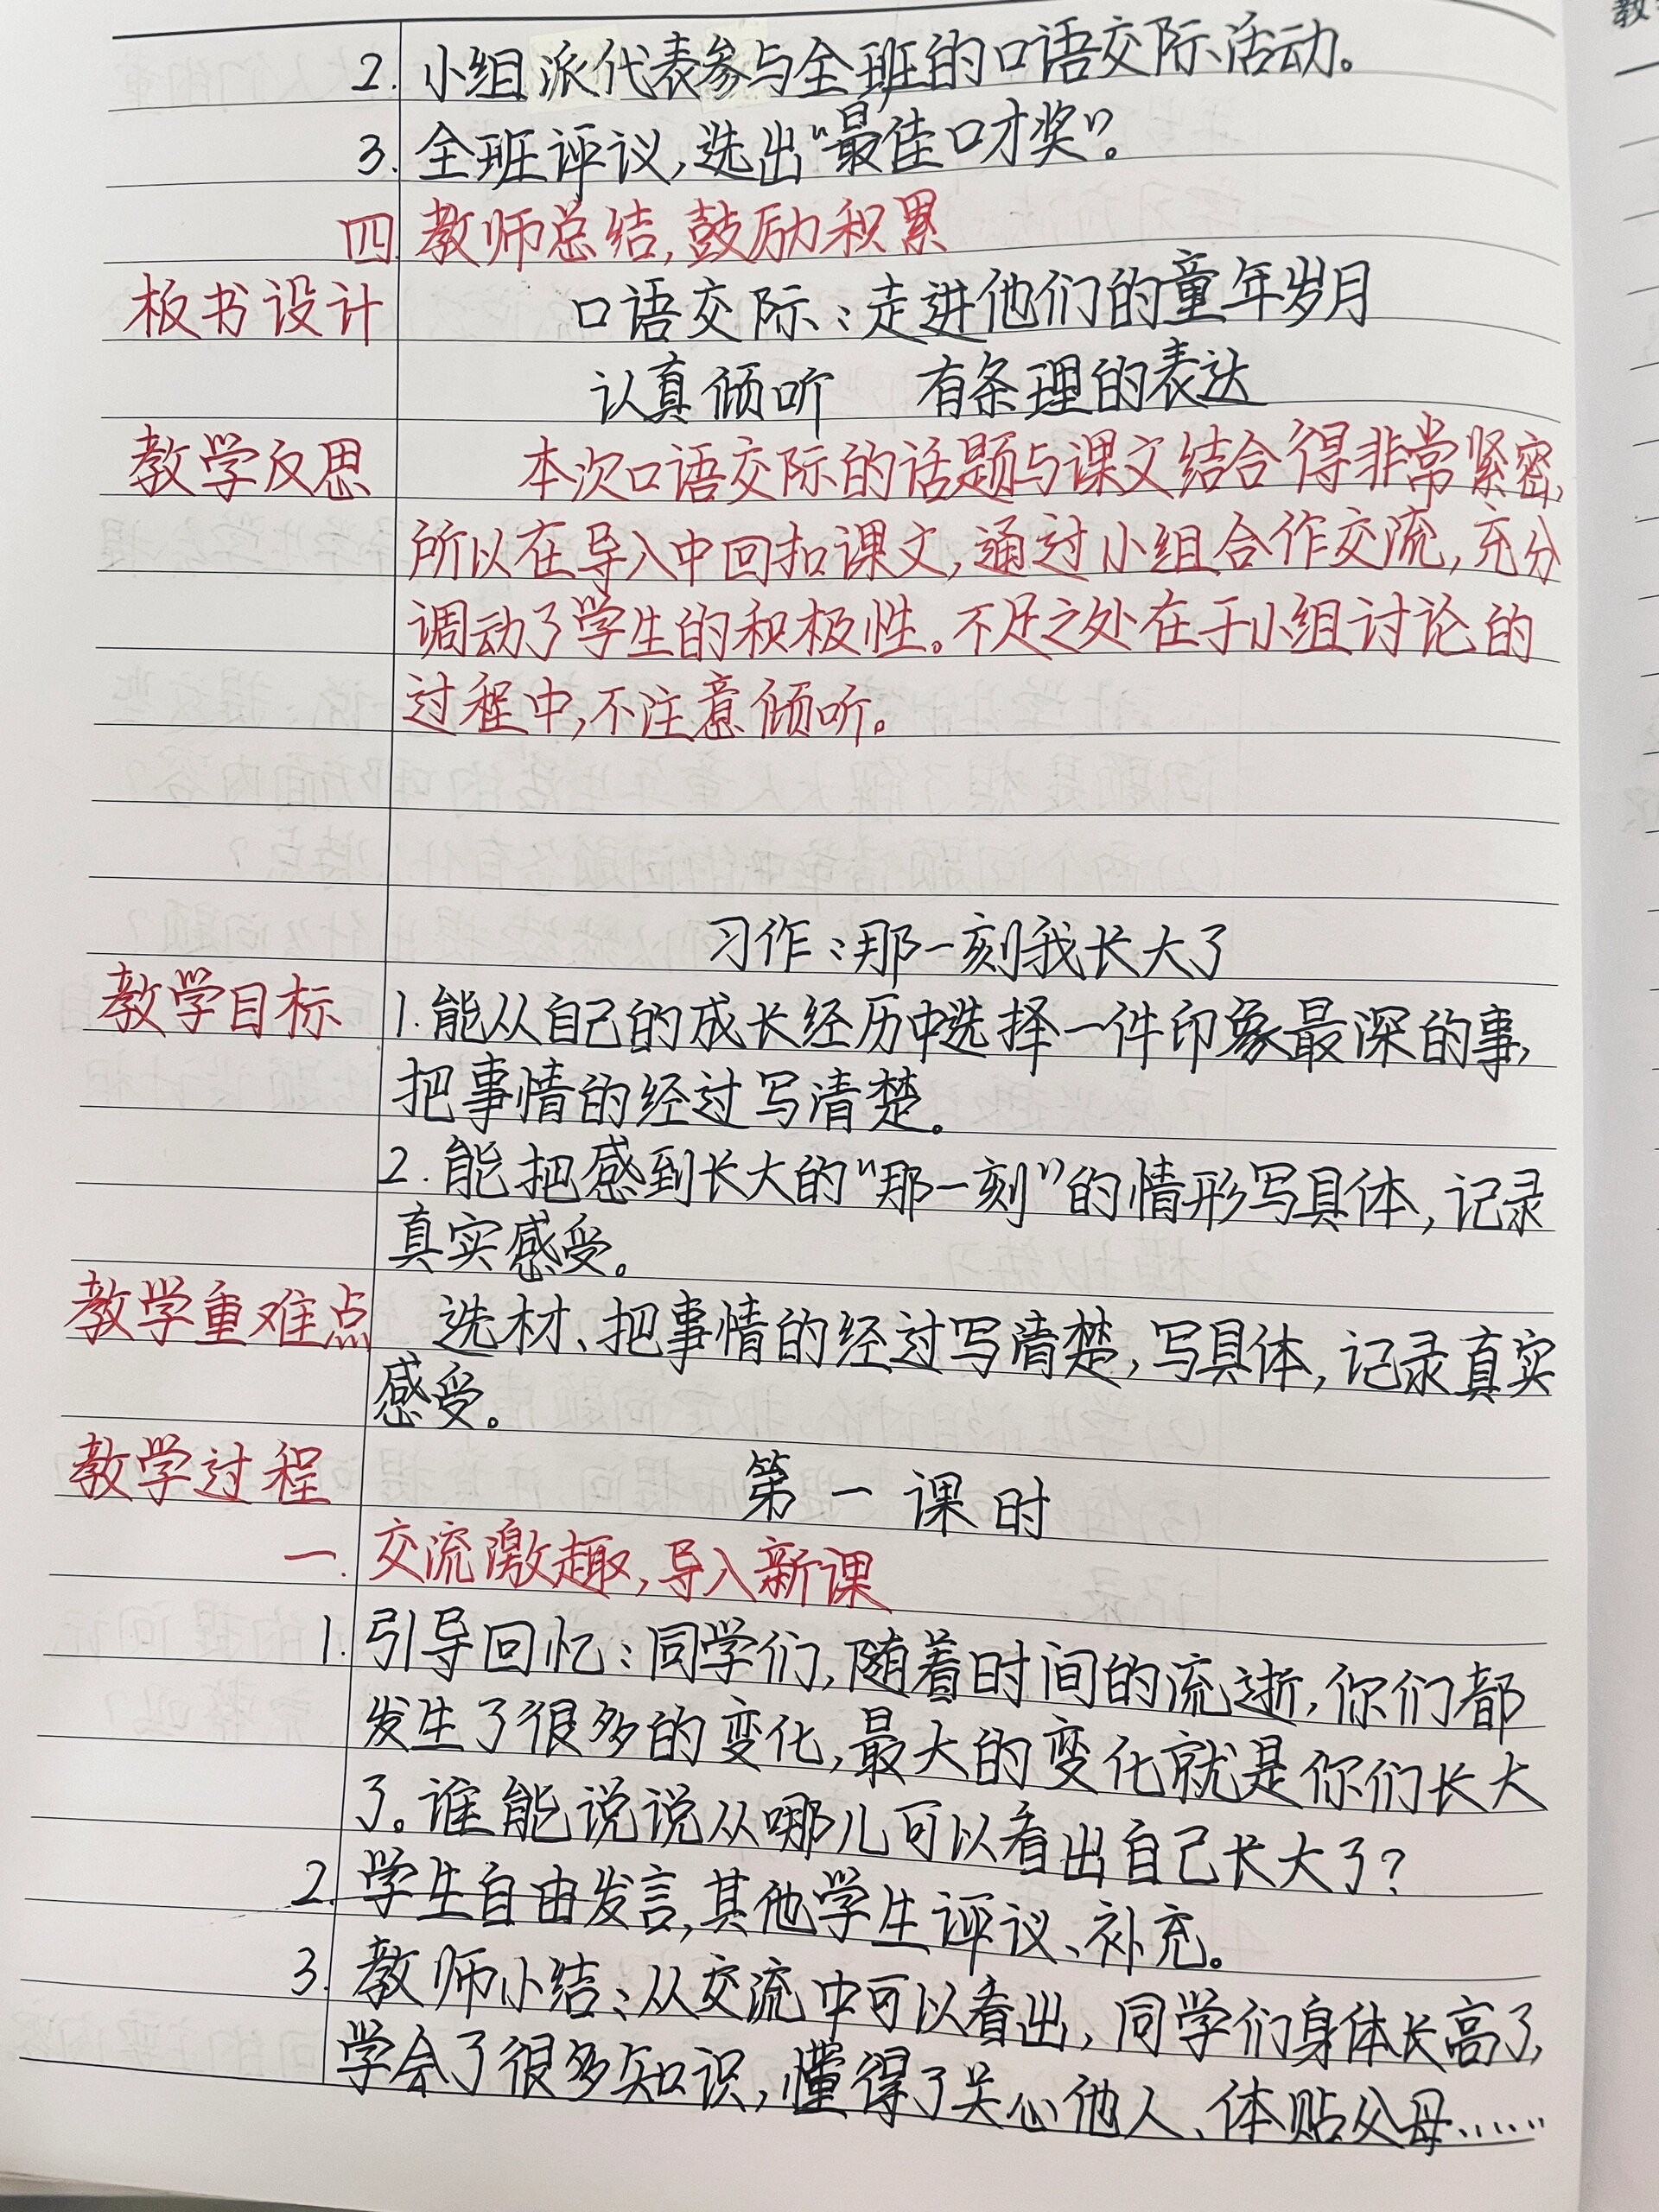 2. 小组派代表参与全班的口语交际活动。
3. 全班评议,选出“最佳口才奖”。
四. 教师总结,鼓励积累
板书设计 口语交际:走进他们的童年岁月
认真倾听 有条理的表达
教学反思 本次口语交际的话题与课文结合得非常紧密,
所以在导入中回扣课文,通过小组合作交流,充分
调动了学生的积极性。不足之处在于小组讨论的
过程中,不注意倾听。
习作:那一刻我长大了
教学目标 1.能从自己的成长经历中选择一件印象最深的事,
把事情的经过写清楚。
2.能把感到长大的“那一刻”的情形写具体,记录
真实感受。
教学重难点 选材、把事情的经过写清楚,写具体,记录真实
感受。
教学过程 第一课时
一. 交流激趣,导入新课
1. 引导回忆:同学们,随着时间的流逝,你们都
发生了很多的变化,最大的变化就是你们长大
了。谁能说说从哪儿可以看出自己长大了?
2. 学生自由发言,其他学生评议、补充。
3. 教师小结:从交流中可以看出,同学们身体长高了,
学会了很多知识,懂得了关心他人、体贴父母……